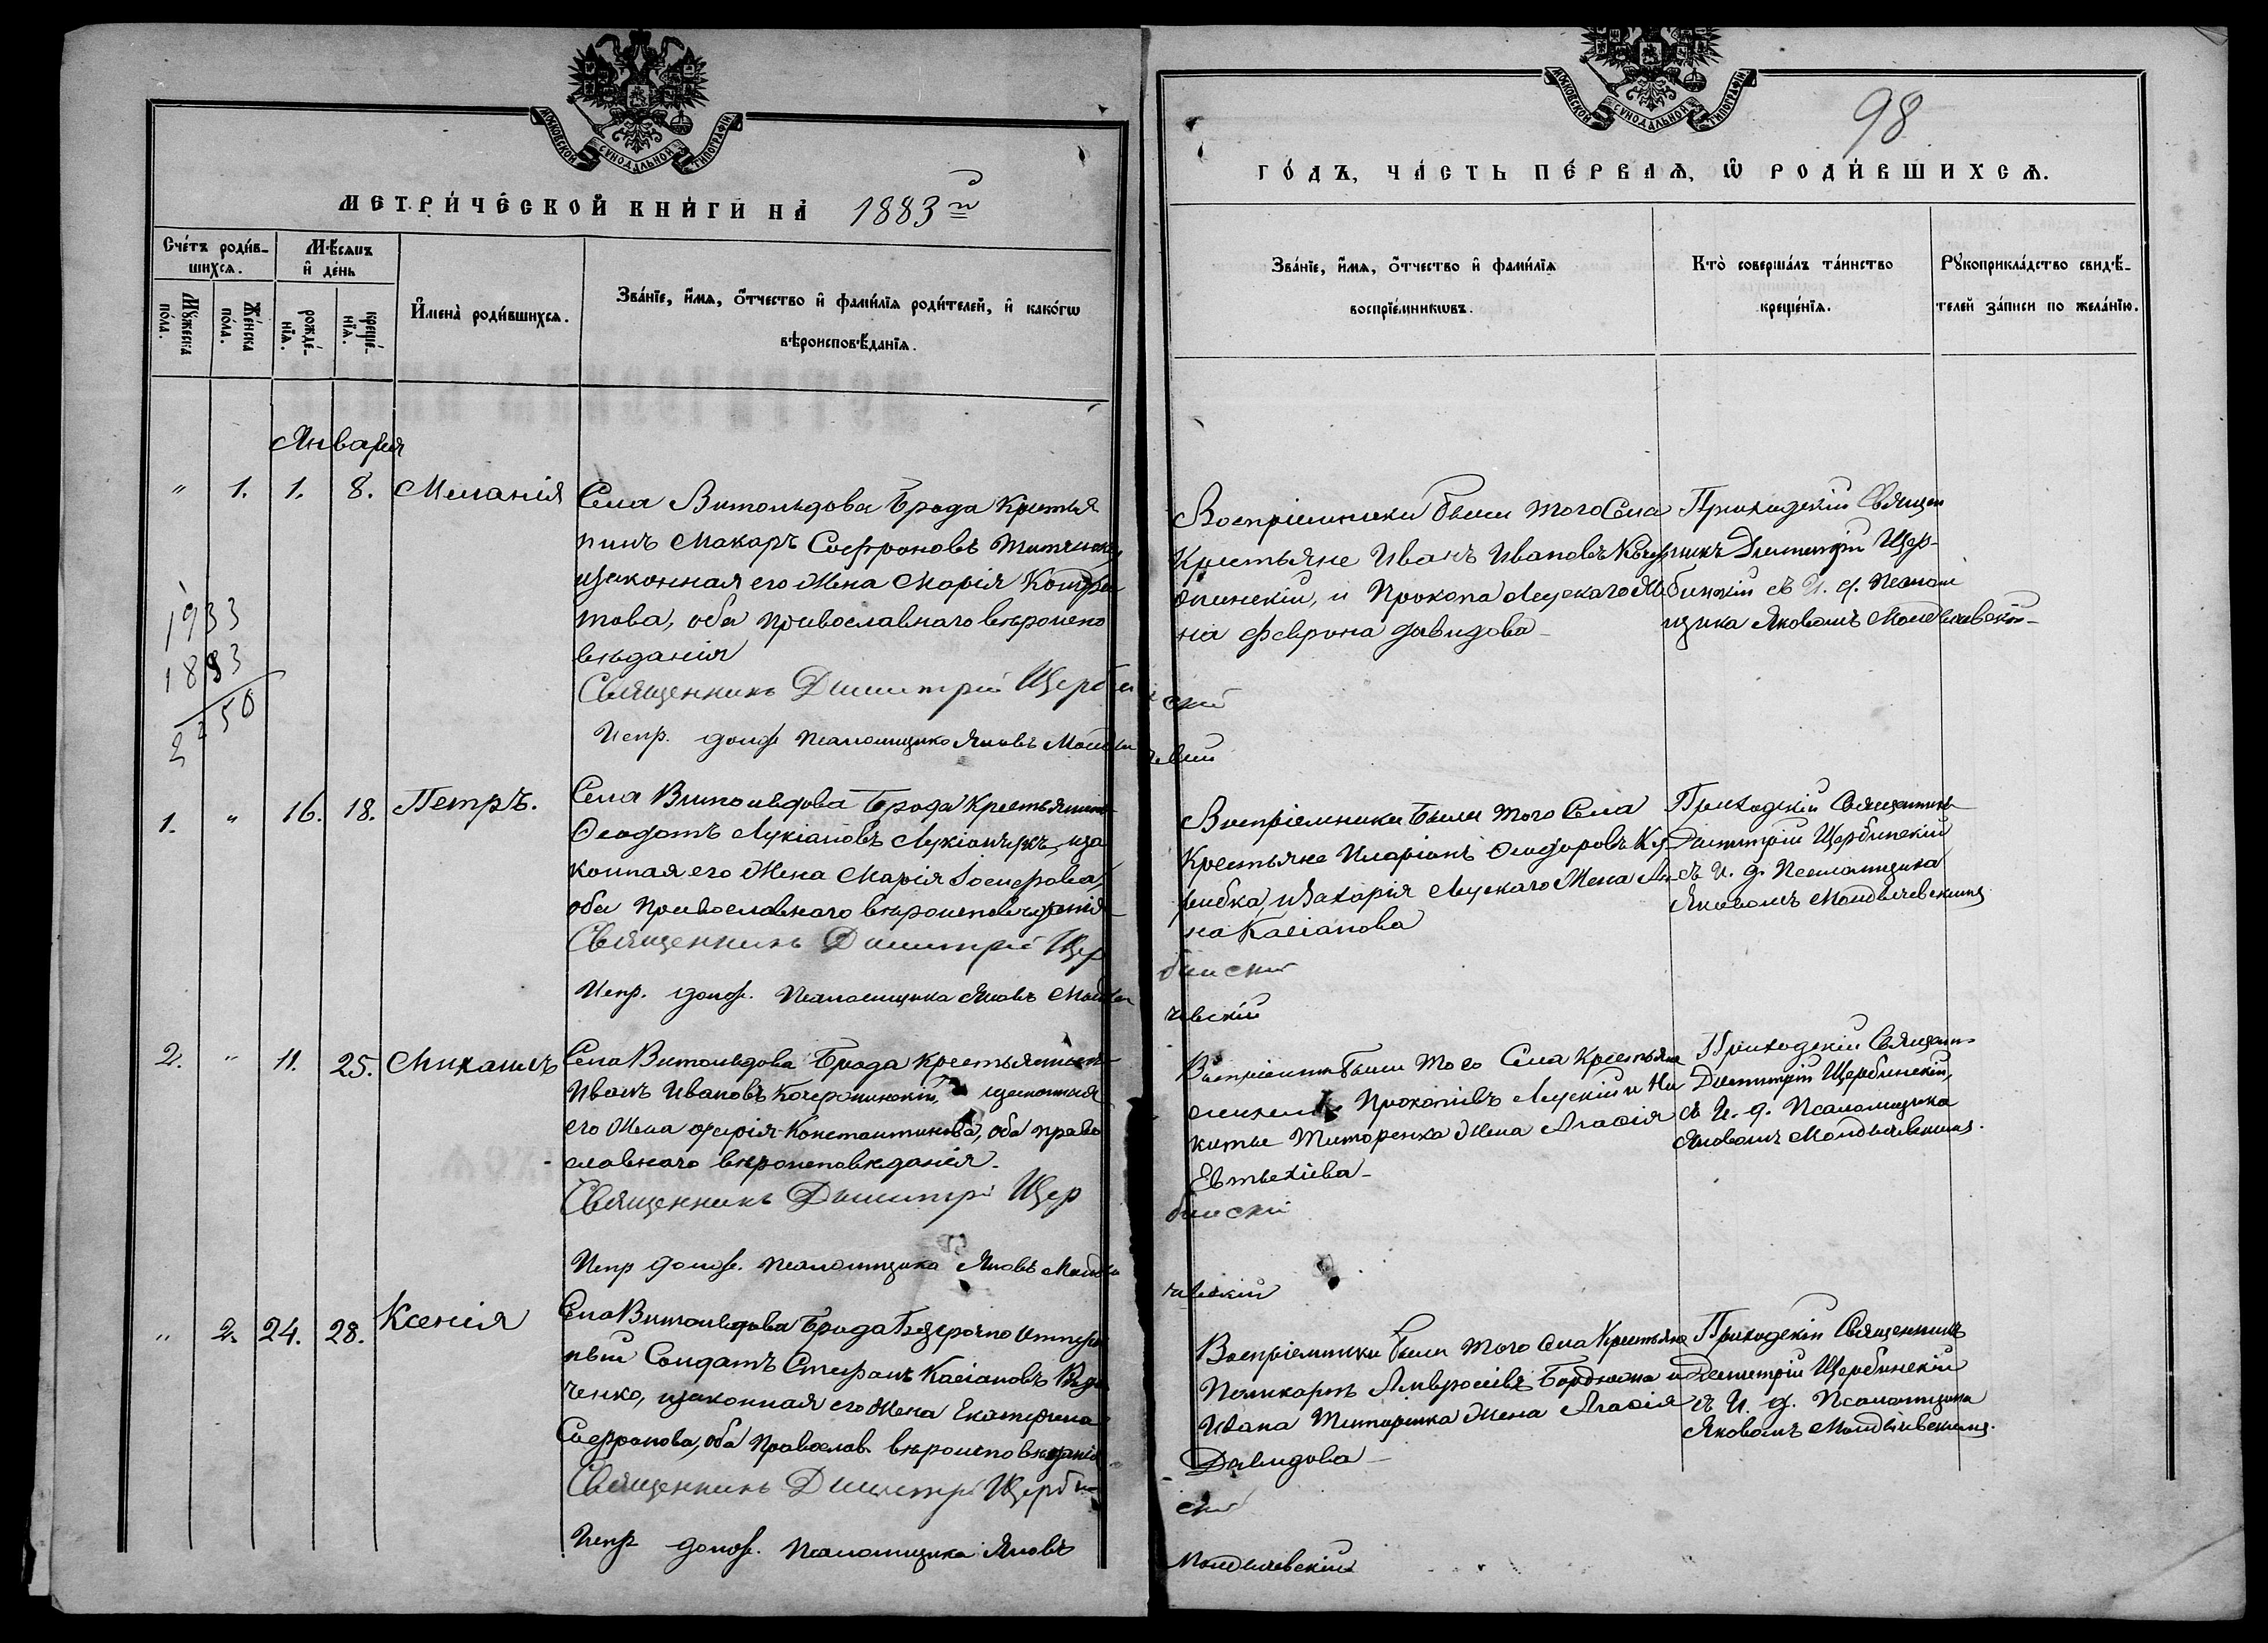 МОСКОВСКОЙ СѴНОДАЛЬНОЙ ТИПОГРАФІИ
МЕТРИ́ЧЕСКОЙ КНИ́ГИ НА̀ 1883 й
Сче́тъ роди́в-
шихся.
Мѣ́сяцъ
и҆ де́нь
Мꙋ́жеска
по́ла.
Же́нска
по́ла.
рожде́-
нїя.
креще́-
нїя.
И҆мена̀ роди́вшихся.
Зва́нїе, и҆́мя, ѻ҆́тчество и҆ фами́лїя роди́телей, и҆ како́гѡ
вѣроисповѣ́данїя.
Января
" 1. 1. 8. Меланія
Села Витольдова Брода Крестья
нинъ Макаръ Софроновъ
изаконная его Жена Марія
това, оба Православнаго вѣроиспо
вѣданія
Священникъ Димитрій Щерби
Испр. долж. Псаломщика Яковъ
1933
1883
50
1. " 16. 18. Петръ.
Села Витольдова Брода Крестьянинъ
Ѳеодотъ Лукіановъ иза
конная его Жена Марія Іосифова,
оба Православнаго вѣроисповѣданія
Священникъ Димитрій Щер
Испр. долж. Псаломщика Яковъ
2. " 11. 25. Михаилъ
Села Витольдова Брода Крестьянинъ
Иванъ Ивановъ изаконная
его Жена Константинова, оба право
славнаго вѣроисповѣданія.
Священникъ Димитрій Щер
Испр долж. Псаломщика Яковъ
" 2. 24. 28. Ксенія
Села Витольдова Брода Безсрочно отпуск
ный Солдатъ Стефанъ Касіановъ
ченко, изаконная его Жена Екатерина
Софронова, оба Православ. вѣроисповѣданія
Священникъ Димитрій Щербин
Испр долж. Псаломщика Яковъ
МОСКОВСКОЙ СѴНОДАЛЬНОЙ ТИПОГРАФІИ
98
ГО́ДЪ, ЧА́СТЬ ПЕ́РВАЯ, Ѡ҆ РОДИ́ВШИХСЯ.
Зва́нїе, и҆́мя, ѻ҆́тчество и҆ фами́лїя
воспрїе́мникѡвъ.
Кто̀ соверша́лъ та́инство
креще́нїя.
Рꙋкоприкла́дство свидѣ́-
телей за́писи по жела́нїю.
Воспріемники были того Села
Крестьяне Иванъ Ивановъ
и Прокопа Луцкаго Же
на Феврона Давидова
Приходскій Священ
никъ Димитрій Щер-
бинскій съ И. д. Псалом
щика Яковомъ
скій
Воспріемники были того Села
Крестьяне Иларіонъ Ѳеодоровъ
и Захарія Луцкаго Жена Ан-
на Касіанова
Приходскій Священникъ
Димитрій Щербинскій
съ И. д. Псаломщика
Яковомъ
бинскій
чевскій
были того Села Крестьяне
Прокопіевъ Луцкій и Ни
киты Титоренка Жена Агафія
Евтихіева
Приходскій Священ-
Димитрій Щербинскій,
съ И. д. Псаломщика
Яковомъ
бинскій
чевскій
Воспріемники были того Села Крестьяне
Поликарпъ Амвросіевъ и
Ивана Титоренка Жена Агафія
Давидова
Приходскій Священникъ
Димитрій Щербинскій
съ И. д. Псаломщика
Яковомъ
скій